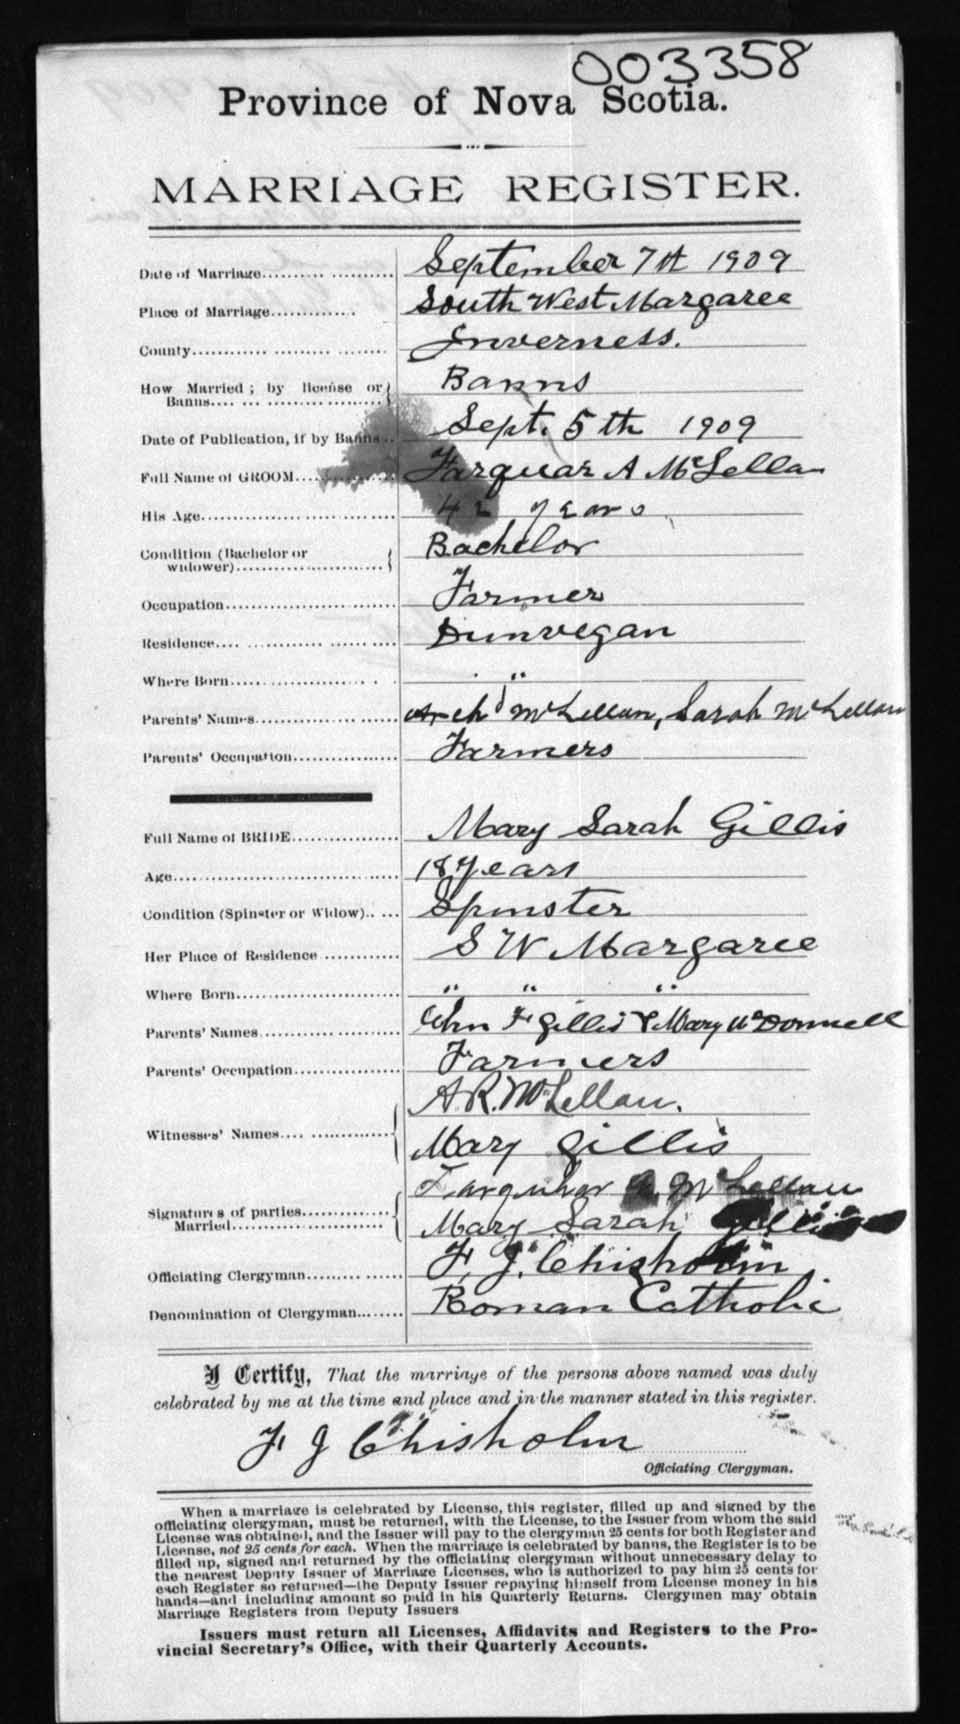 003358
Province of Nova Scotia.
MARRIAGE REGISTER.
Date of Marriage.... September 7th 1909
Place of Marriage.... South West Margaree
County.... Inverness.
How Married; by license or Banns.... Banns
Date of Publication, if by Banns.. Sept. 5th 1909
Full Name of GROOM.... Farquar A McLellan
His Age.... 42 years
Condition (Bachelor or widower).... Bachelor
Occupation.... Farmer
Residence.... Dunvegan
Where Born.... "
Parents' Names.... Archd McLellan, Sarah McLellan
Parents' Occupation.... Farmers
Full Name of BRIDE.... Mary Sarah Gillis
Age.... 18 years
Condition (Spinster or Widow).. Spinster
Her Place of Residence.... S W Margaree
Where Born.... " " "
Parents' Names.... John F Gillis & Mary McDonnell
Parents' Occupation.... Farmers
Witnesses' Names.... A. R. McLellan.
Mary Gillis
Signatures of parties Married.... Farquhar A. McLellan
Mary Sarah Gillis
Officiating Clergyman.... F. J. Chisholm
Denomination of Clergyman.... Roman Catholic
I Certify, That the marriage of the persons above named was duly
celebrated by me at the time and place and in the manner stated in this register.
F J Chisholm
Officiating Clergyman.
When a marriage is celebrated by License, this register, filled up and signed by the
officiating clergyman, must be returned, with the License, to the Issuer from whom the said
License was obtained, and the Issuer will pay to the clergyman 25 cents for both Register and
License, not 25 cents for each. When the marriage is celebrated by banns, the Register is to be
filled up, signed and returned by the officiating clergyman without unnecessary delay to
the nearest Deputy Issuer of Marriage Licenses, who is authorized to pay him 25 cents for
each Register so returned—the Deputy Issuer repaying himself from License money in his
hands—and including amount so paid in his Quarterly Returns. Clergymen may obtain
Marriage Registers from Deputy Issuers
Issuers must return all Licenses, Affidavits and Registers to the Pro-
vincial Secretary's Office, with their Quarterly Accounts.